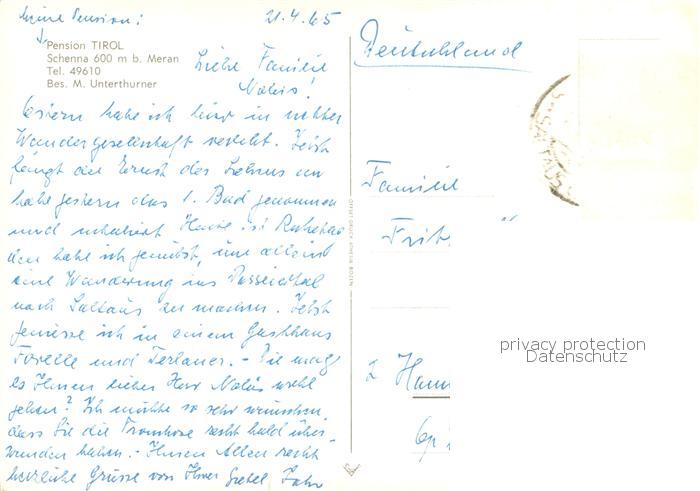 Meine Pension:
21.4.65
Pension TIROL
Schenna 600 m b. Meran
Tel. 49610
Bes. M. Unterthurner
Liebe Familie
Ostern habe ich hier in netter
Wandergesellschaft verlebt. Jetzt
fängt der Ernst des Lebens an
habe gestern das 1. Bad genommen
und inhaliert Heute ist Ruhetag
den habe ich genützt, um allein
eine Wanderung ins Passeiertal
nach Saltaus zu machen. Jetzt
geniesse ich in einem Gasthaus
Forelle und Terlaner. - Wie mag
es Ihnen lieber Herr wohl
gehen? Ich möchte so sehr wünschen,
dass Sie die Thrombose recht bald über-
wunden haben. - Ihnen Allen recht
herzliche Grüsse von Ihrer Gretel Jahn
Deutschland
Familie
Frit
2 Ham
SALTAUS
privacy protection
Datenschutz